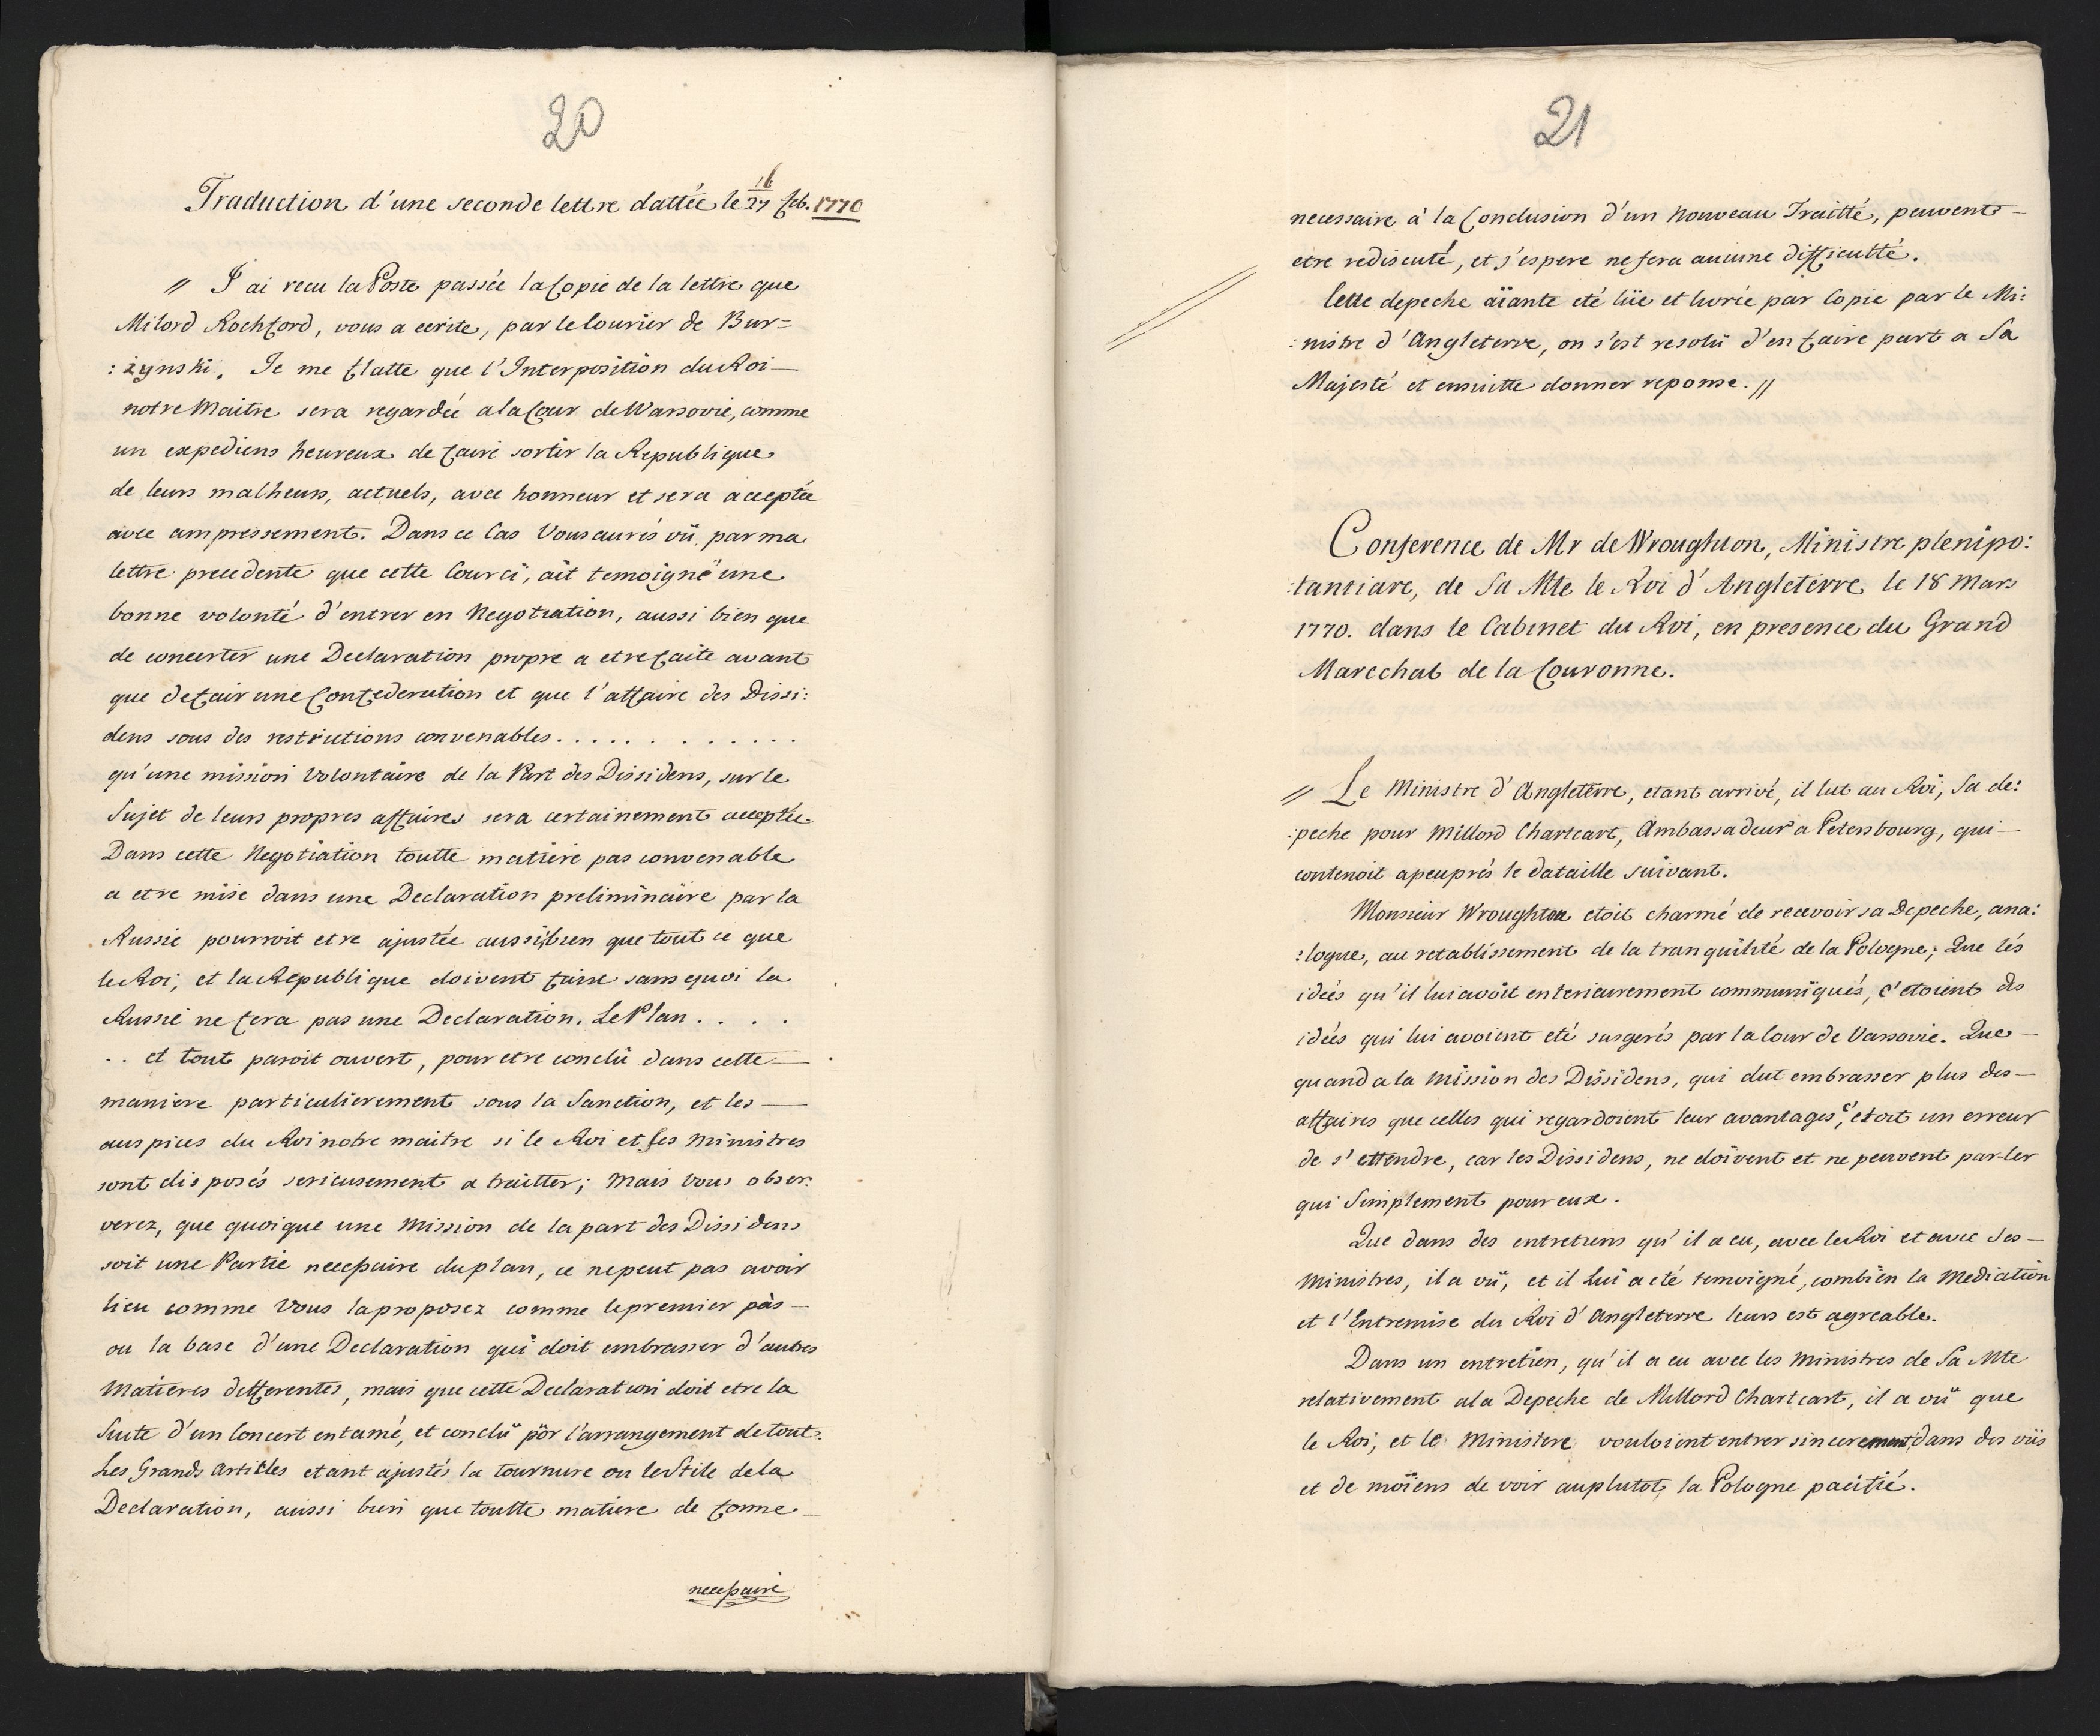 20
Traduction d'une seconde lettre dattée le 16/27 feb. 1770
// J'ai recu la Poste passée la Copie de la lettre que
Milord Rochford, vous a ecrite, par le Courier de Bur=
:zynski. Je me flatte que l'Interposition du Roi —
notre Maitre sera regardée a la Cour de Warsovie, comme
un expediens heureux de faire sortir la Republique
de leurs malheurs, actuels, avec honneur et sera acceptée
avec ampressement. Dans ce Cas Vous aurés vü, par ma
lettre precedente que cette Cour ci, ait temoigné une
bonne volonté d'entrer en Negotiation, aussi bien que
de concerter une Declaration propre a etre faite avant
que de fair une Confederation et que l'affaire des Dissi:
dens sous des restrictions convenables. . . . . . . . . . . . .
qu'une mission volontaire de la Part des Dissidens, sur le
Sujet de leurs propres affaires sera certainement acceptée.
Dans cette Negotiation toutte matiere pas convenable
a etre mise dans une Declaration preliminaire par la
Russie pourroit etre ajustée aussi bien que tout ce que
le Roi, et la Republique doivent faire sans quoi la
Russie ne fera pas une Declaration. Le Plan . . . .
. . et tout paroit ouvert, pour etre conclü dans cette —
maniere particulierement sous la Sanction, et les —
auspices du Roi notre maitre si le Roi et ses Ministres
sont disposés serieusement a traitter; Mais vous obser:
verez, que quoique une Mission de la part des Dissidens
soit une Partie necessaire du plan, ce ne peut pas avoir
lieu comme Vous la proposez comme le premier pàs —
ou la base d'une Declaration qui doit embrasser d'autres
Matieres differentes, mais que cette Declaration doit etre la
Suite d'un Concert entamé, et conclü por l'arrangement de tout.
Les Grands Articles etant ajustés la tournure ou le Stile de la
Declaration, aussi bien que toutte matiere de forme —
necessaire
21
necessaire à la Conclusion d'un Nouveau Traitté, peuvent —
etre rediscuté, et j'espere ne fera aucune difficulté.
Cette depeche aïante eté lüe et livrée par Copie par le Mi:
:nistre d'Angleterre, on s'est resolü d'en faire part a Sa
Majesté et ensuitte donner reponse. //
Conference de Mr de Wroughton, Ministre plenipo:
:tantiare, de Sa Mte le Roi d'Angleterre le 18 Mars
1770. dans le Cabinet du Roi, en presence du Grand
Marechal de la Couronne.
// Le Ministre d'Angleterre, etant arrivé, il lut au Roi, Sa de:
:peche pour Millord Chartcart, Ambassadeur a Petersbourg, qui —
contenoit apeuprés le dataille suivant.
Monsieur Wroughton etoit charmé de recevoir sa Depeche, ana:
:logue, au retablissement de la tranquilité de la Pologne; Que lés
idées qu'il lui avoit enterieurement communiqués, c'etoient des
idées qui lui avoient eté susgerés par la Cour de Varsovie. Que —
quand a la Mission des Dissidens, qui dut embrasser plus des —
affaires que celles qui regardoient leur avantages, c'etoit un erreur
de s'ettendre, car les Dissidens, ne doivent et ne peuvent parler
qui Simplement pour eux.
Que dans des entretiens qu'il a eu, avec le Roi et avec Ses —
Ministres, il a vü, et il Lui a eté temoigné, combien la Mediation
et l'Entremise du Roi d'Angleterre leurs est agreable.
Dans un entretien, qu'il a eu avec les Ministres de Sa Mte
relativement a la Depeche de Millord Chartcart, il a vü que
le Roi, et le Ministere vouloient entrer sincerement dans des vüs
et de moïens de voir auplutot la Pologne pacifié.